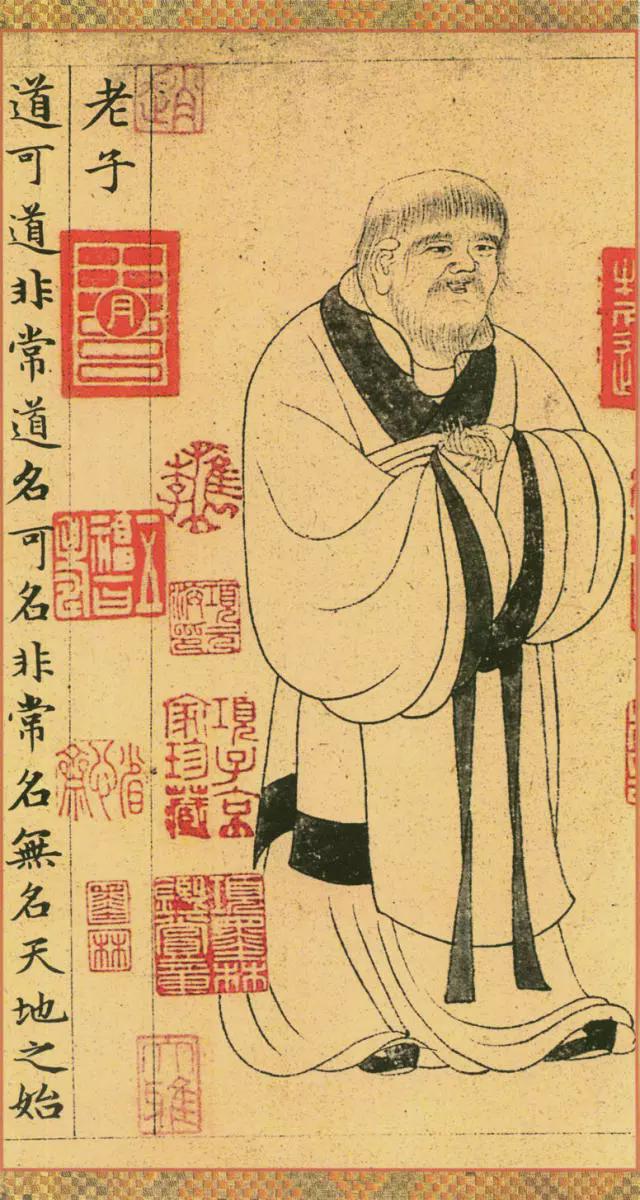 老子
道可道非常道名可名非常名無名天地之始
項子京
家珍藏
項墨林
鑑賞章
墨林